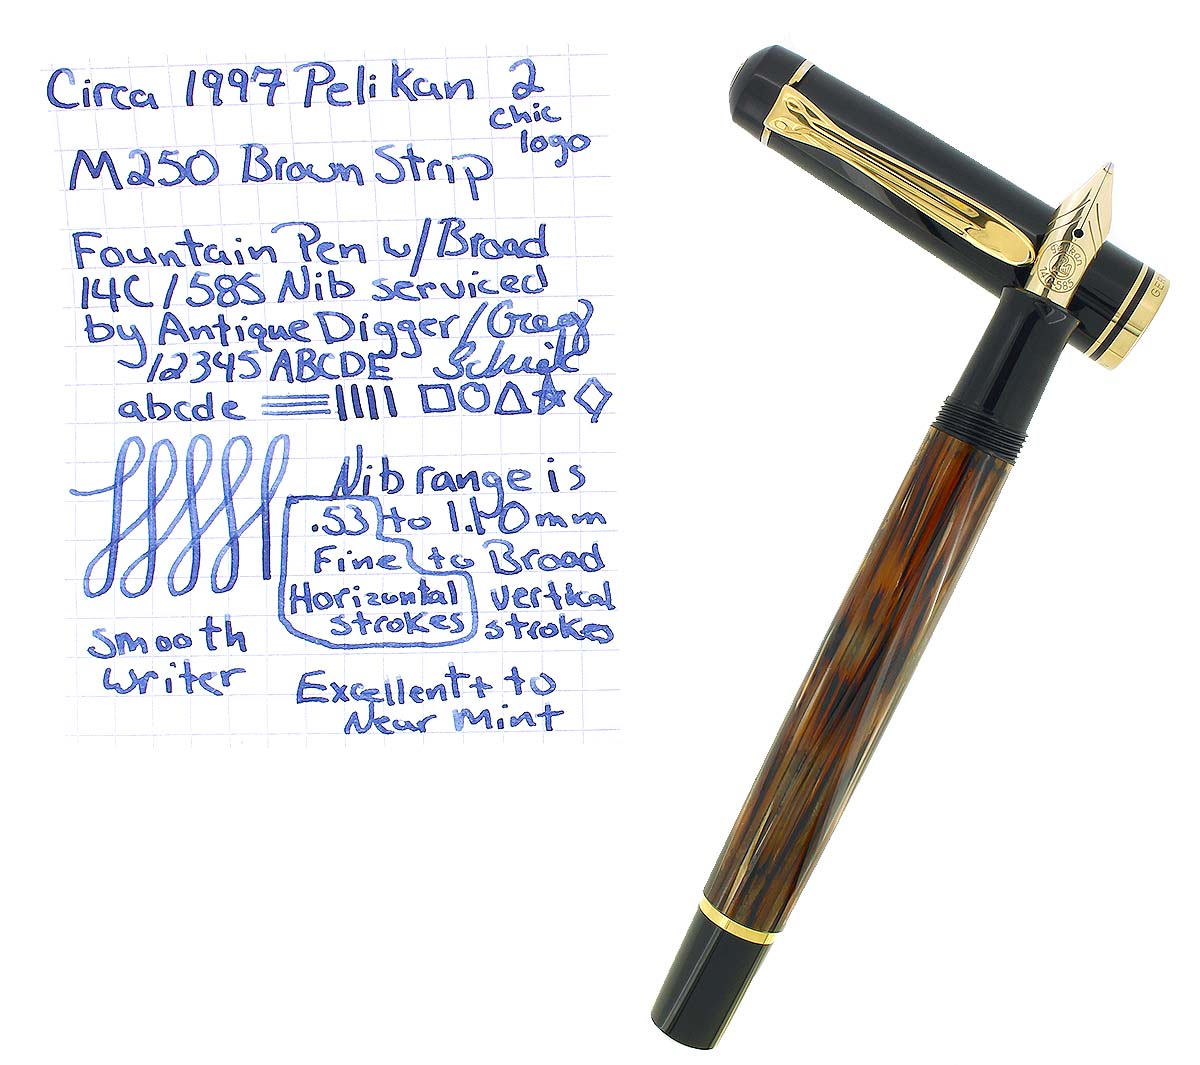 Circa 1997 Pelikan 2
chic
logo
M250 Brown Strip
Fountain Pen w/Broad
14C/585 Nib serviced
by Antique Digger/Gregg
12345 ABCDE
abcde
Nib range is
.53 to 1.10mm
Fine to Broad
Horizontal vertical
strokes strokes
smooth
writer
Excellent+ to
Near Mint
14C-585
GER